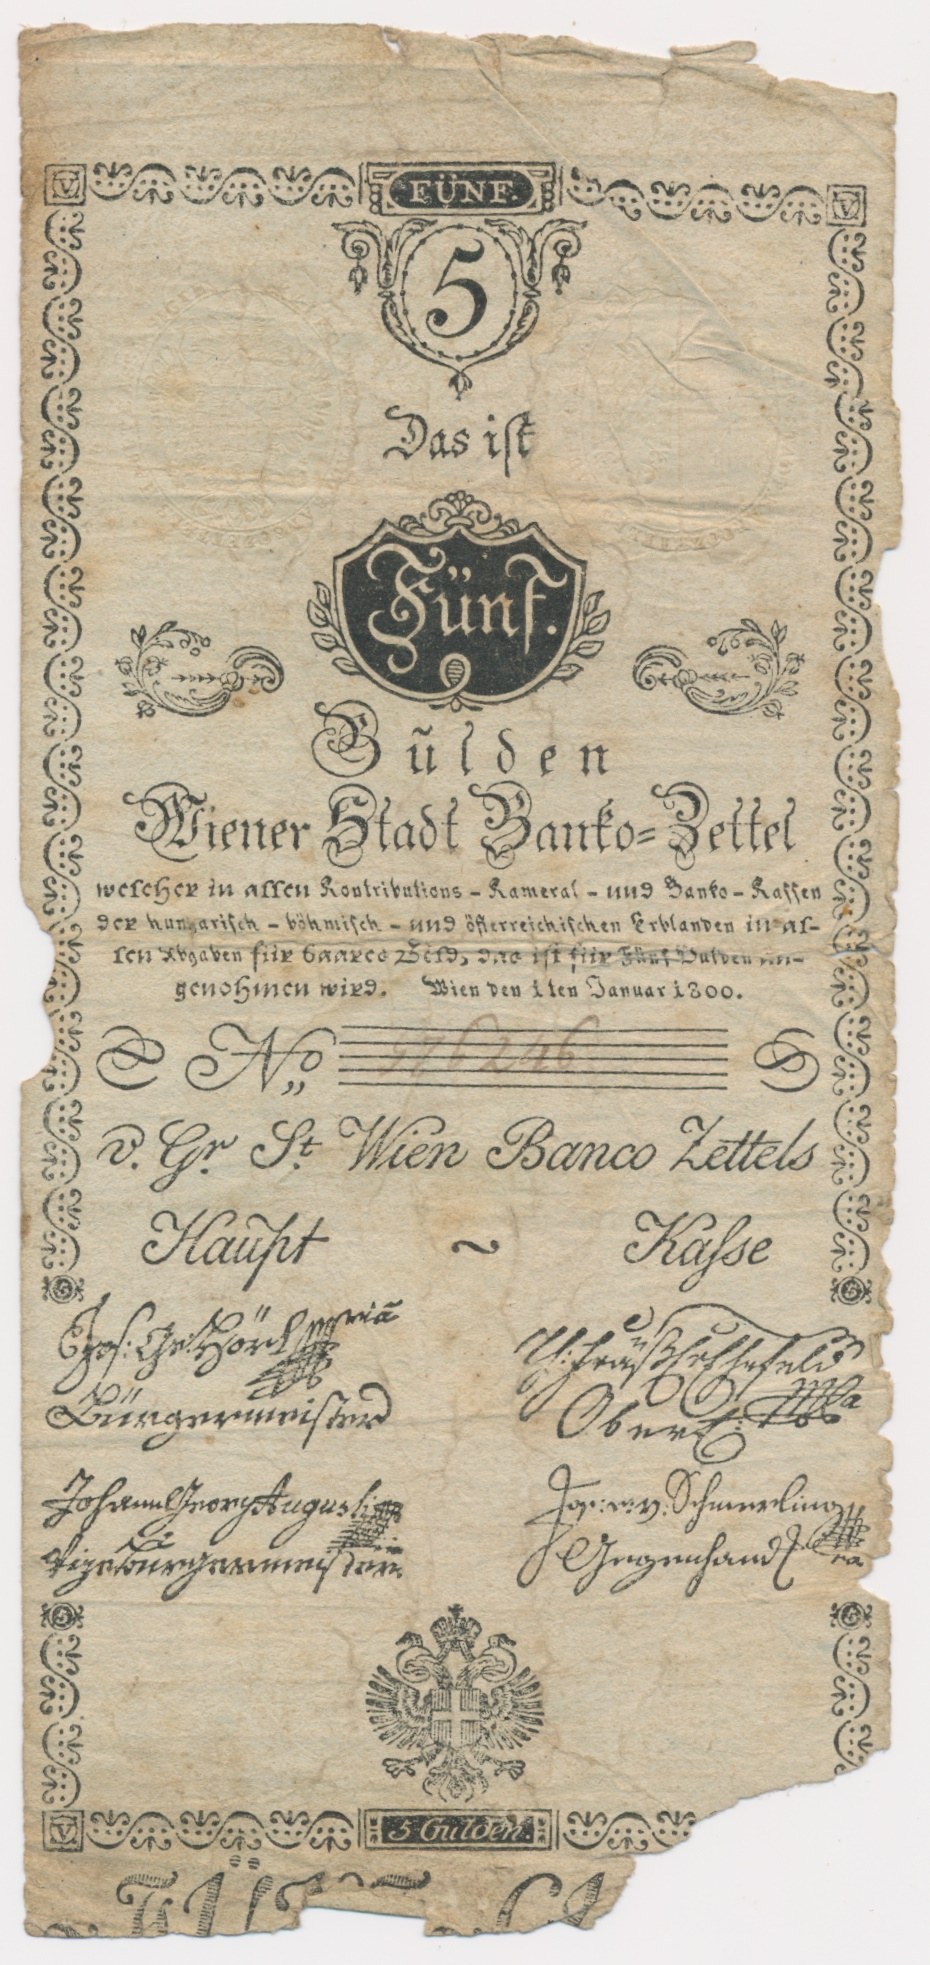 V FÜNF. V
5
Das ist
Fünf.
Gulden
Wiener Stadt Banko=Zettel
welcher in allen Kontributions - Kameral - und Banko - Kassen
der hungarisch - böhmisch - und österreichischen Erblanden in al-
len Abgaben für baares Geld, das ist für Fünf Gulden an-
genohmen wird. Wien den 1ten Januar 1800.
No 976246
v. Gr. St. Wien Banco Zettels
Haupt ~ Kasse
Bürgermeister
Johann Georg Augusti
Vizebürgermeister
v. Schmerling
Gegenhand
V 5 Gulden.